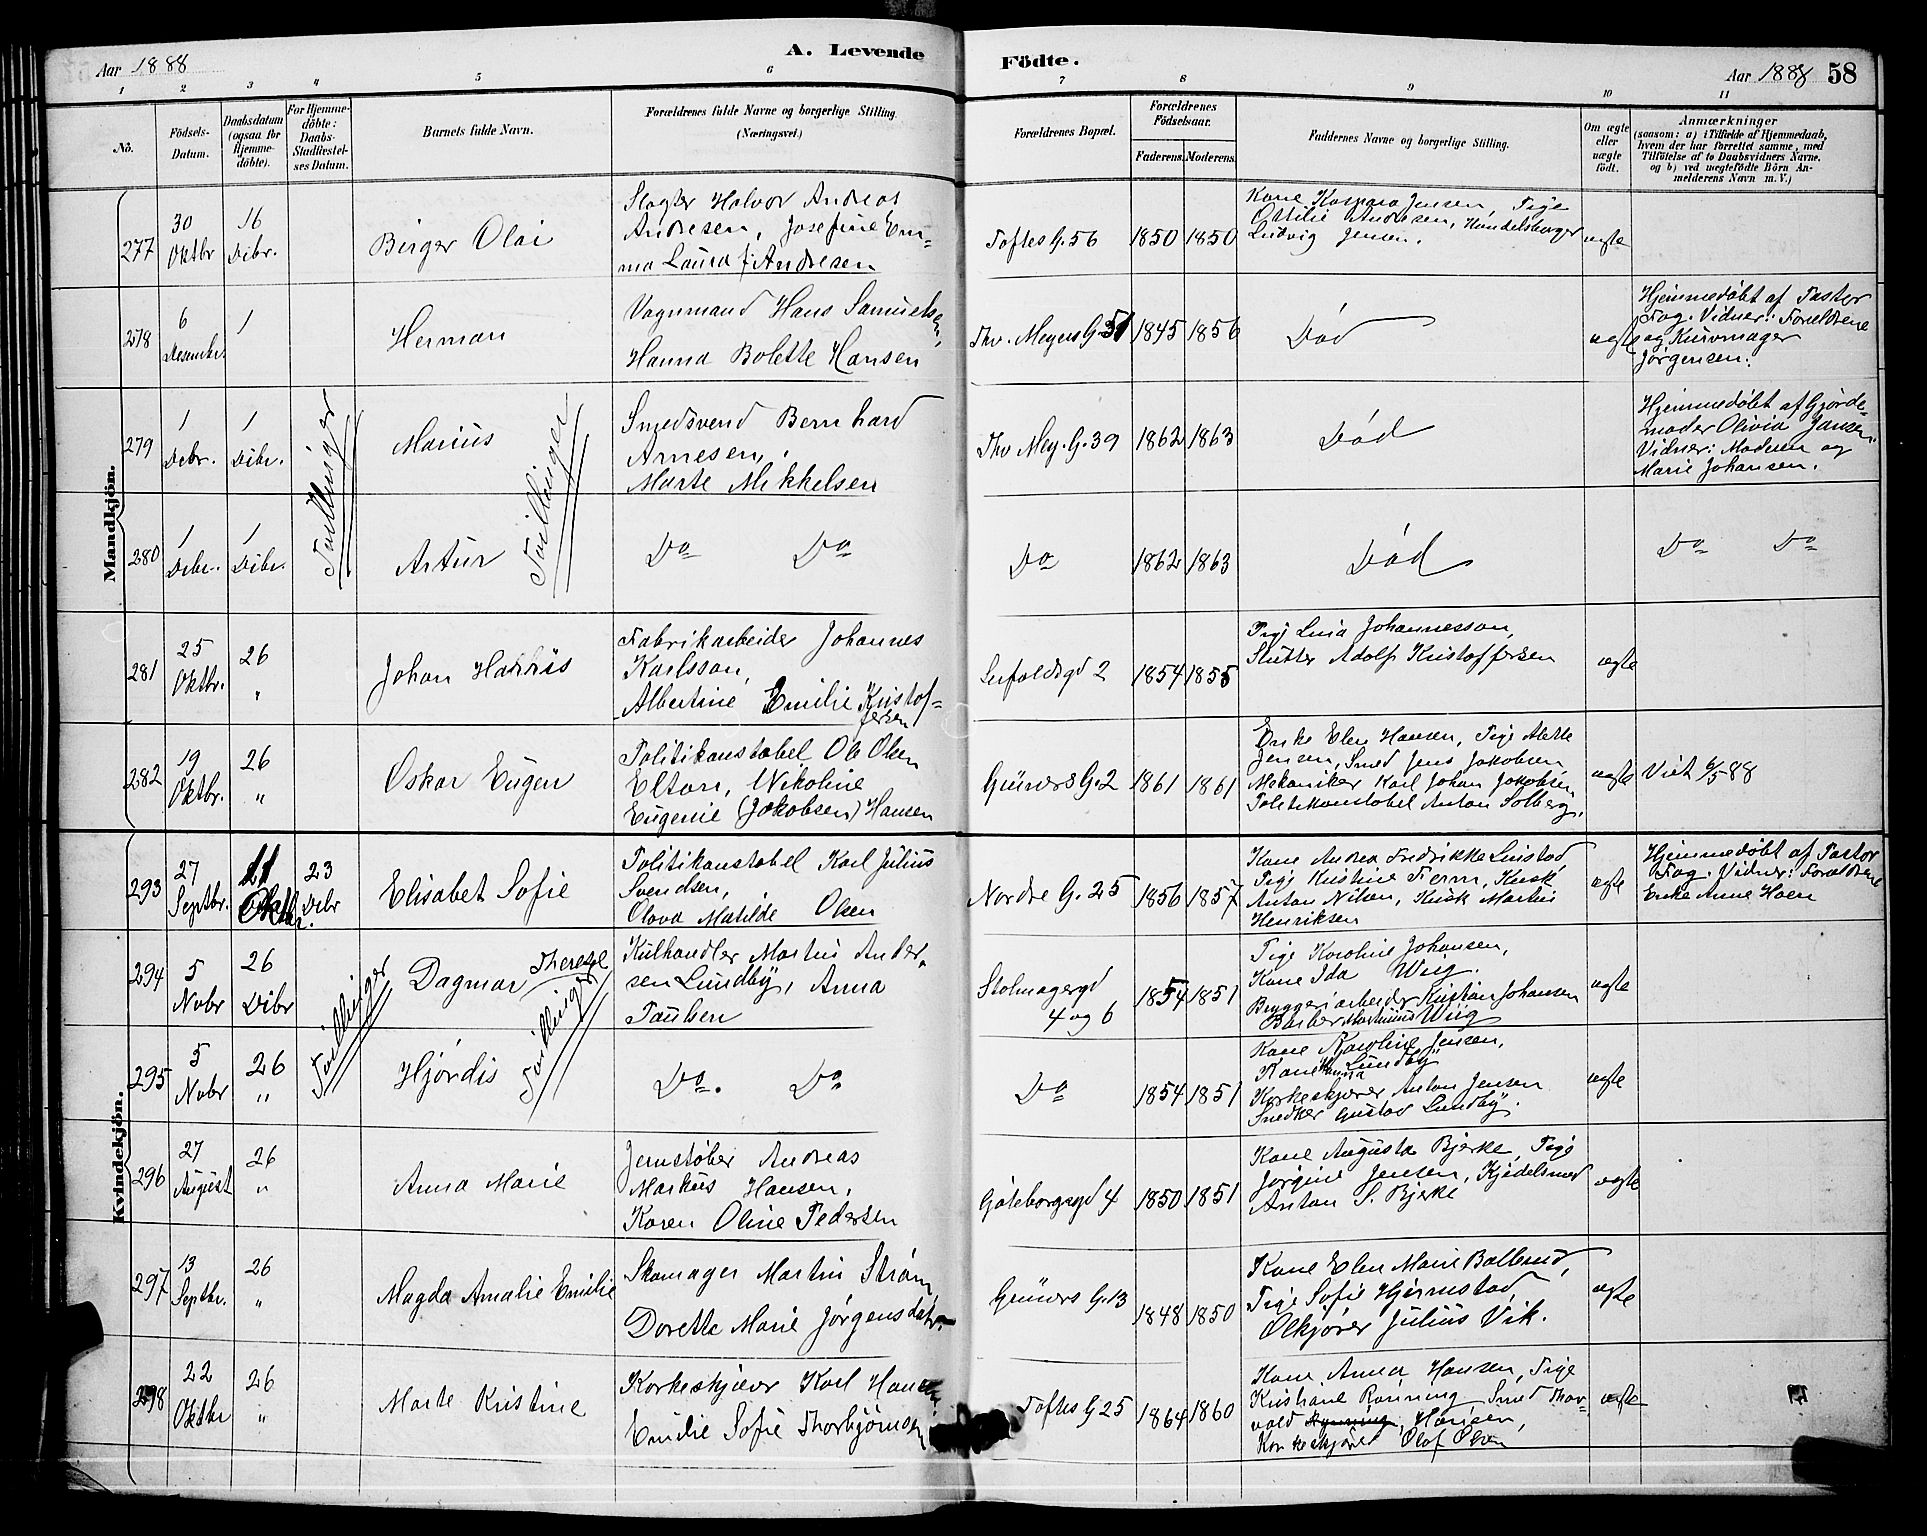 Aar 1888
A. Levende
Födte.
Aar 1888 58
1 2 3 4 5 6 7 8 9 10 11
No.
Födsels-
Datum.
Daabsdatum
(ogsaa for
Hjemme-
döbte).
For Hjemme-
döbte:
Daabs-
Stadfæstel-
ses Datum.
Barnets fulde Navn.
Forældrenes fulde Navne og borgerlige Stilling.
(Næringsvei.)
Forældrenes Bopæl.
Forældrenes
Födselsaar.
Faderens. Moderens.
Faddernes Navne og borgerlige Stilling.
Om ægte
eller
uægte
født.
Anmærkninger
(saasom: a) i Tilfælde af Hjemmedaab,
hvem der har forrettet samme, med
Tilföielse af to Daabsvidners Navne,
og b) ved uegtefödte Börn An-
melderens Navn m. V.)
Mandkjön.
277
30
Oktbr
16
Dcbr.
Birger Olai
Slagter Halvor Andreas
Andresen, Josefine Em-
ma Laura f. Andresen
Toftes G. 56
1850 1850
Kone Kaspara Jensen, Pige
Ottilie Andresen, Handelsborger
Ludvig Jensen.
ægte
278
6
Desembr.
1
Herman
Vognmand Hans Samuelsen,
Hanna Bolette Hansen
Thv. Meyers G. 51
1845 1856
Død
ægte
Hjemmedøbt af Pastor
Fog. Vidner: Forældrene
og Kurvmager
Jørgensen.
279
1
Debr.
1
Dcbr.
Tvillinger
Marius
Tvillinger
Smedsvend Bernhard
Arnesen,
Marte Mikkelsen
Thv Mey. G. 39
1862 1863
Død
Hjemmedøbt af Gjorde-
moder Olivia Jansen.
Vidner: Moderen og
Marie Johansen.
280
1
Debr.
1
Dcbr.
Artur
Do Do
Do
1862 1863
Død
Do Do
281
25
Oktbr.
26
"
Johan Harris
Fabrikarbeider Johannes
Karlsson,
Albertine Emilie Kristof-
fersen
2
1854 1855
Pige Lina Johannesson,
Adolf Kristoffersen
ægte
282
19
Oktbr.
26
"
Oskar Eugen
Politikonstabel Ole Olsen
Elton, Nikoline
Eugenie (Jakobsen) Hansen
Grüners G. 2
1861 1861
Enke Elen Hansen, Pige Mette
Jensen, Smed Jens Jakobsen
Mekaniker Karl Johan Jakobsen
Politikonstabel Anton Solberg.
ægte
Viet 6/5 88
Kvindekjön.
293
27
Septbr.
21
Oktbr.
23
Debr
Elisabet Sofie
Politikonstabel Karl Julius
Svendsen,
Olava Matilde Olsen
Nordre G. 25
1856 1857
Kone Andrea Fredrikke Lüstad
Pige Kristine Ferm, Kusk
Anton Nilsen, Kusk Martin
Henriksen
ægte
Hjemmedøbt af Pastor
Fog. Vidner: Forældrene
Enke Anne Hoen
294
5
Novbr
26
Dcbr
Tvillinger
Dagmar Therese
Tvillinger
Kulhandler Martin Ander-
sen Lundby, Anna
Paulsen
Stolmagergd
4 og 6
1854 1851
Pige Karoline Johansen,
Kone Ida Wiig.
Bryggeriarbeider Kristian Johansen
Barber Martinius Wiig
ægte
295
5
Novbr
26
"
Hjørdis
Do. Do
Do
1854 1851
Kone Karoline Jensen,
Kone Hanna Lundby
Korkeskjærer Anton Jensen
Snedker Gustav Lundby.
ægte
296
27
August
26
"
Anna Marie
Jernstøber Andreas
Markus Hansen,
Karen Oline Pedersen
Gøteborgsgd 4
1850 1851
Kone Augusta Bjerke, Pige
Jørgine Jensen, Kjedelsmed
Anton S. Bjerke
ægte
297
13
Septbr.
26
"
Magda Amalie Emilie
Skomager Martin Strøm
Dorette Marie Jørgensdatr
Grüners G. 13
1848 1850
Kone Elen Marie Ballerud,
Pige Sofie Hjermstad,
Ølkjører Julius Vik.
ægte
298
22
Oktbr
26
"
Marte Kristine
Korkeskjærer Karl Hansen
Emilie Sofie Thorbjørnsen
Toftes G 25
1864 1860
Kone Anna Hansen, Pige
Kristiane Rønning Smed Thor-
vald Hansen,
Korkeskjærer Olof Olsen
ægte